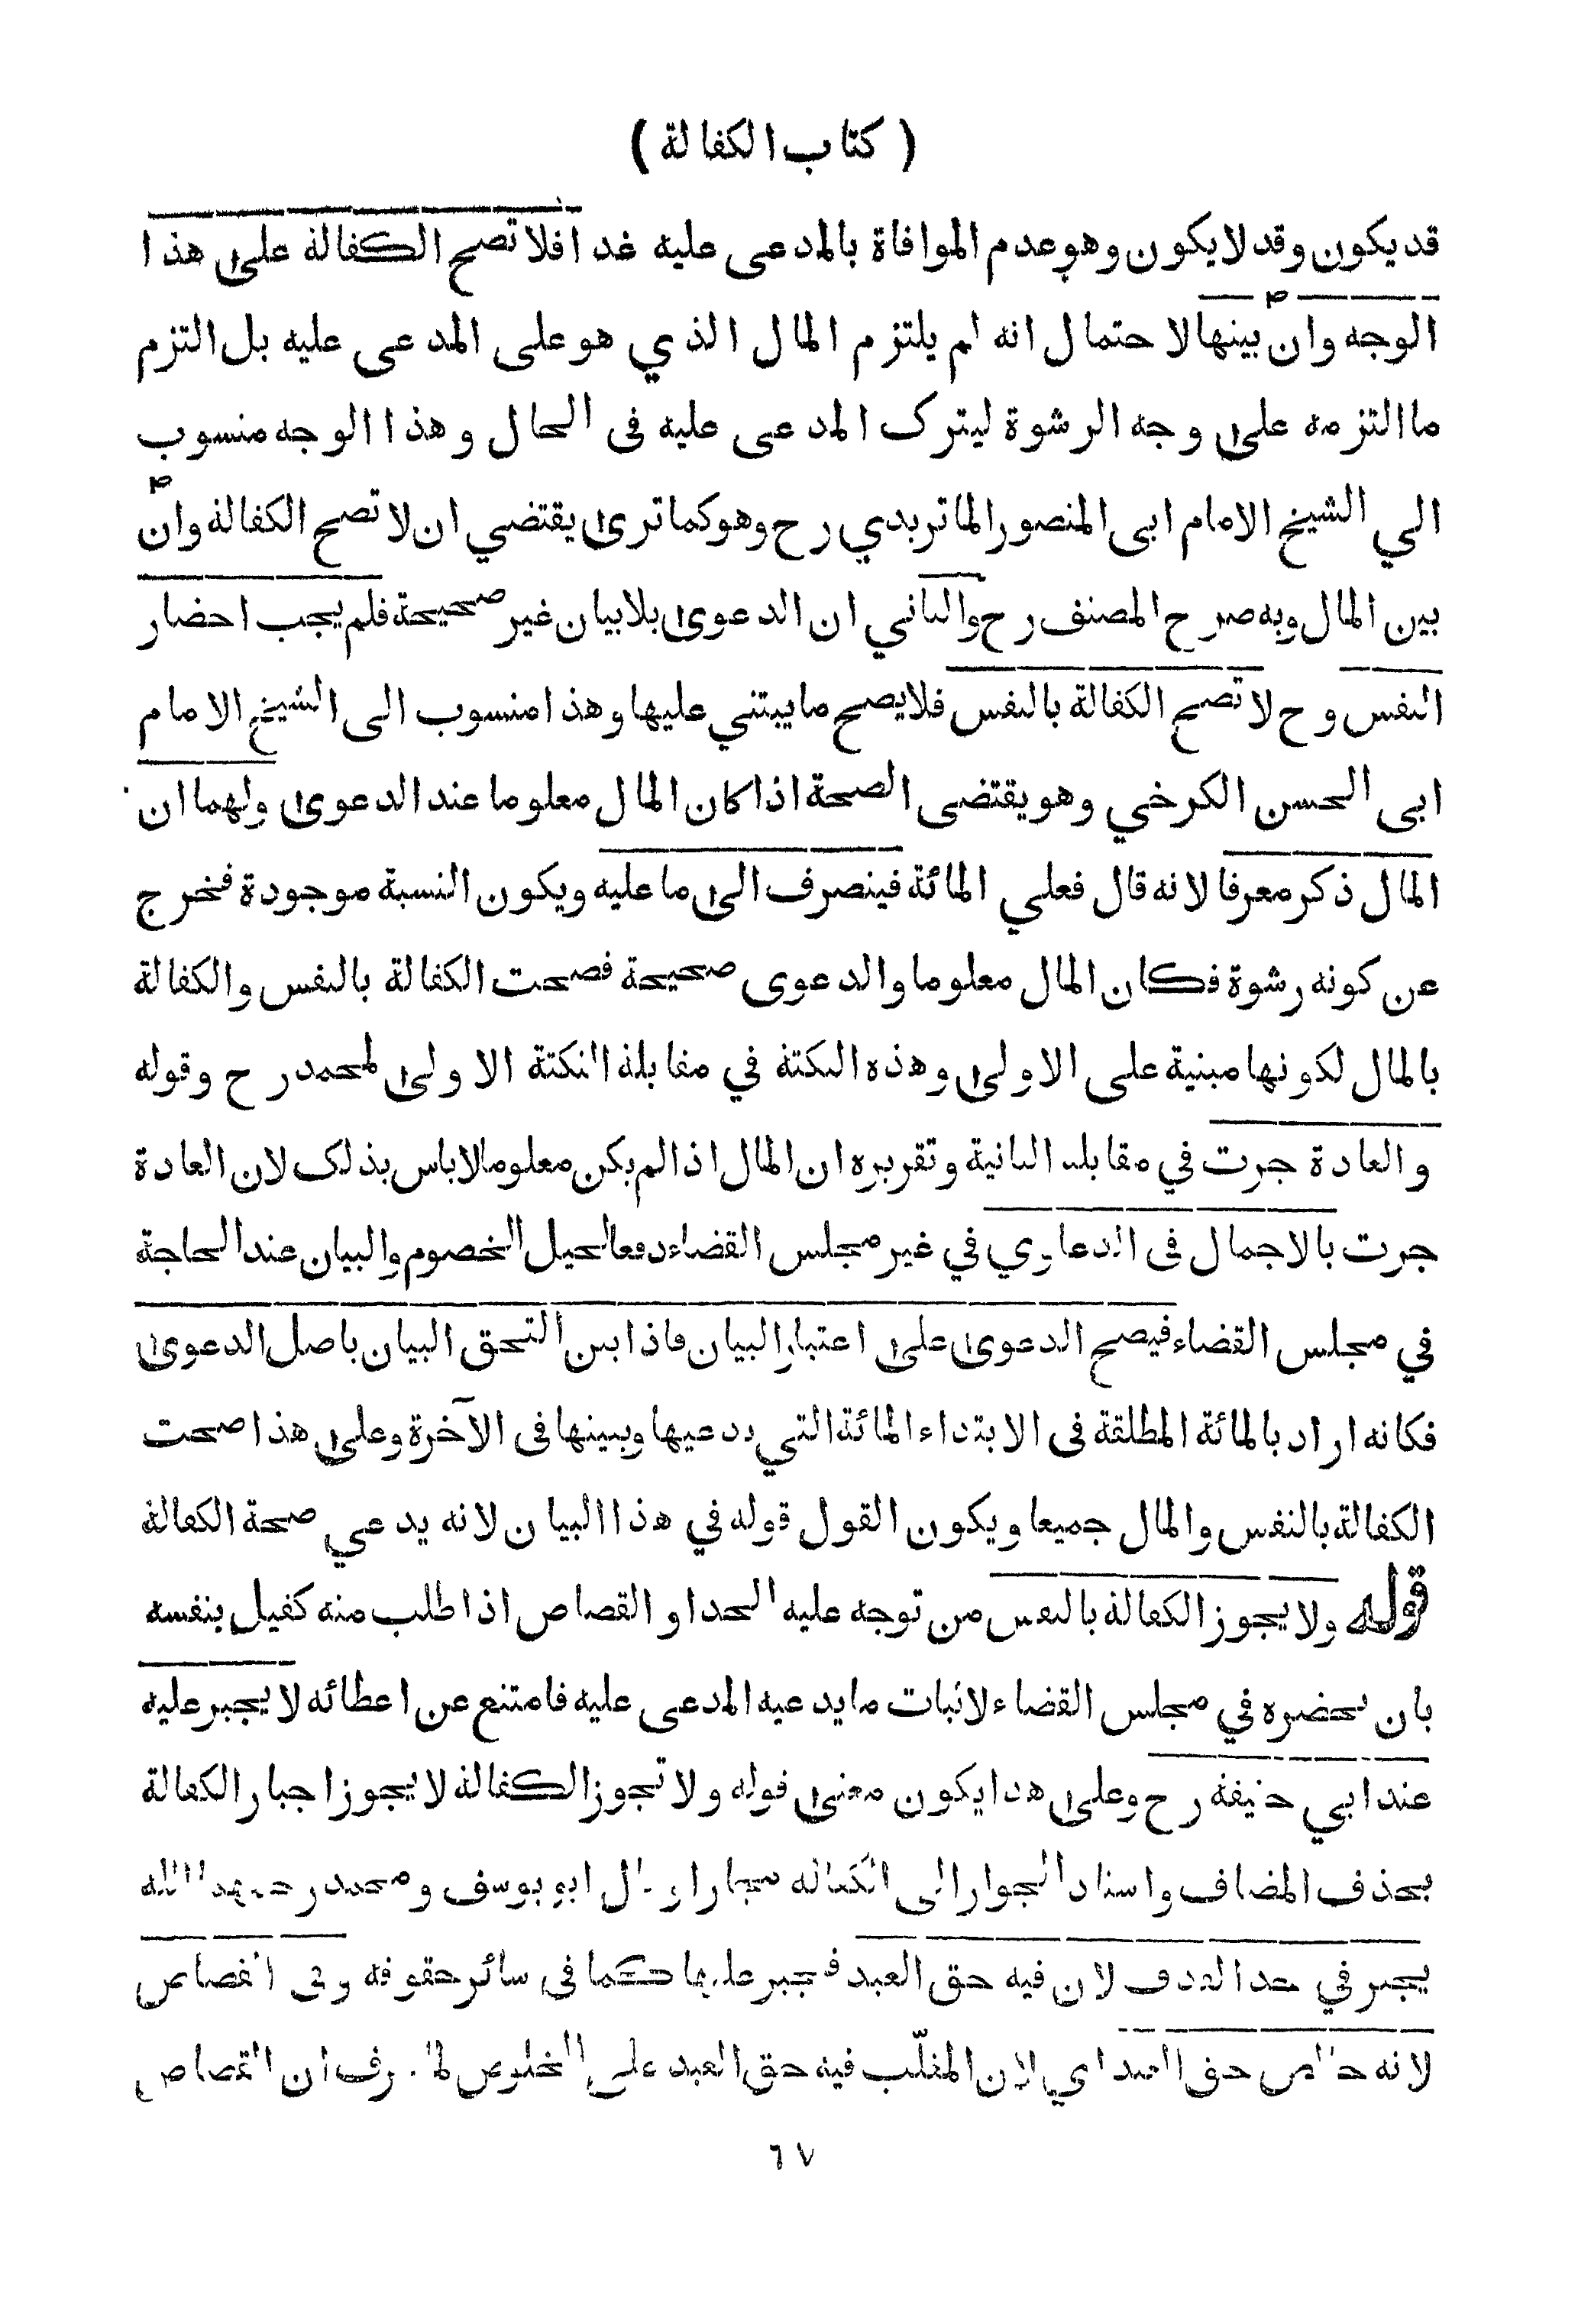 ( كتاب الكفالة )
قد يكون وقد لا يكون وهو عدم الموافاة بالمدعى عليه غدا فلا تصح الكفالة على هذا
الوجه وان بينها لاحتمال انه لم يلتزم المال الذي هو على المدعى عليه بل التزم
ما التزمه على وجه الرشوة ليترك المدعى عليه فى الحال وهذا الوجه منسوب
الي الشيخ الامام ابى المنصور الماتريدي رح وهو كما ترى يقتضي ان لا تصح الكفالة وان
بين المال وبه صرح المصنف رح والثاني ان الدعوى بلا بيان غير صحيحة فلم يجب احضار
النفس وح لا تصح الكفالة بالنفس فلا يصح ما يبتني عليها وهذا منسوب الى الشيخ الامام
ابى الحسن الكرخي وهو يقتضى الصحة اذا كان المال معلوما عند الدعوى ولهما ان
المال ذكر معرفا لانه قال فعلي المائة فينصرف الى ما عليه ويكون النسبة موجودة فخرج
عن كونه رشوة فكان المال معلوما والدعوى صحيحة فصحت الكفالة بالنفس والكفالة
بالمال لكونها مبنية على الاولى وهذه النكتة في مقابلة النكتة الاولى لمحمد رح وقوله
والعادة جرت في مقابلة الثانية وتقريره ان المال اذا لم يكن معلوما لا باس بذلك لان العادة
جرت بالاجمال فى الدعاوي في غير مجلس القضاء دفعا لحيل الخصوم والبيان عند الحاجة
في مجلس القضاء فيصح الدعوى على اعتبار البيان فاذا بين التحق البيان باصل الدعوى
فكانه اراد بالمائة المطلقة فى الابتداء المائة التي يدعيها وبينها فى الآخرة وعلى هذا صحت
الكفالة بالنفس والمال جميعا ويكون القول قوله في هذا البيان لانه يدعي صحة الكفالة
قوله ولا يجوز الكفالة بالنفس من توجه عليه الحد او القصاص اذا طلب منه كفيل بنفسه
بان يحضره في مجلس القضاء لاثبات ما يدعيه المدعى عليه فامتنع عن اعطائه لا يجبر عليه
عند ابي حنيفة رح وعلى هذا يكون معنى قوله ولا تجوز الكفالة لا يجوز اجبار الكفالة
بحذف المضاف واسناد الجواز الى الكفالة مجازا وقال ابو يوسف ومحمد رحمهما الله
يجبر في حد القذف لان فيه حق العبد فيجبر عليها كما فى سائر حقوقه وفى القصاص
لانه خالص حق العبد اي لان المغلّب فيه حق العبد على الخلوص لما عرف ان القصاص
٦٧